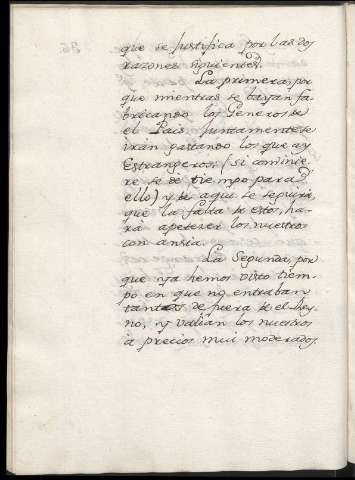 que se Justifica por las dos
razones siguientes.
La primera, por
que mientras se bayan fa-
bricando los Generos de
el Pais, juntamente se
iràn gastando los que ay
Estrangeros, (si combinie-
re se dè tiempo para
ello) y de aqui se seguirà,
que la falta de estos, ha-
rà apetezer los nuestros
con ansia.
La Segunda, por
que ya hemos visto tiem-
po en que no entraban
tantos de fuera de el Rey-
no, y valian los nuestros
à precios mui moderados,